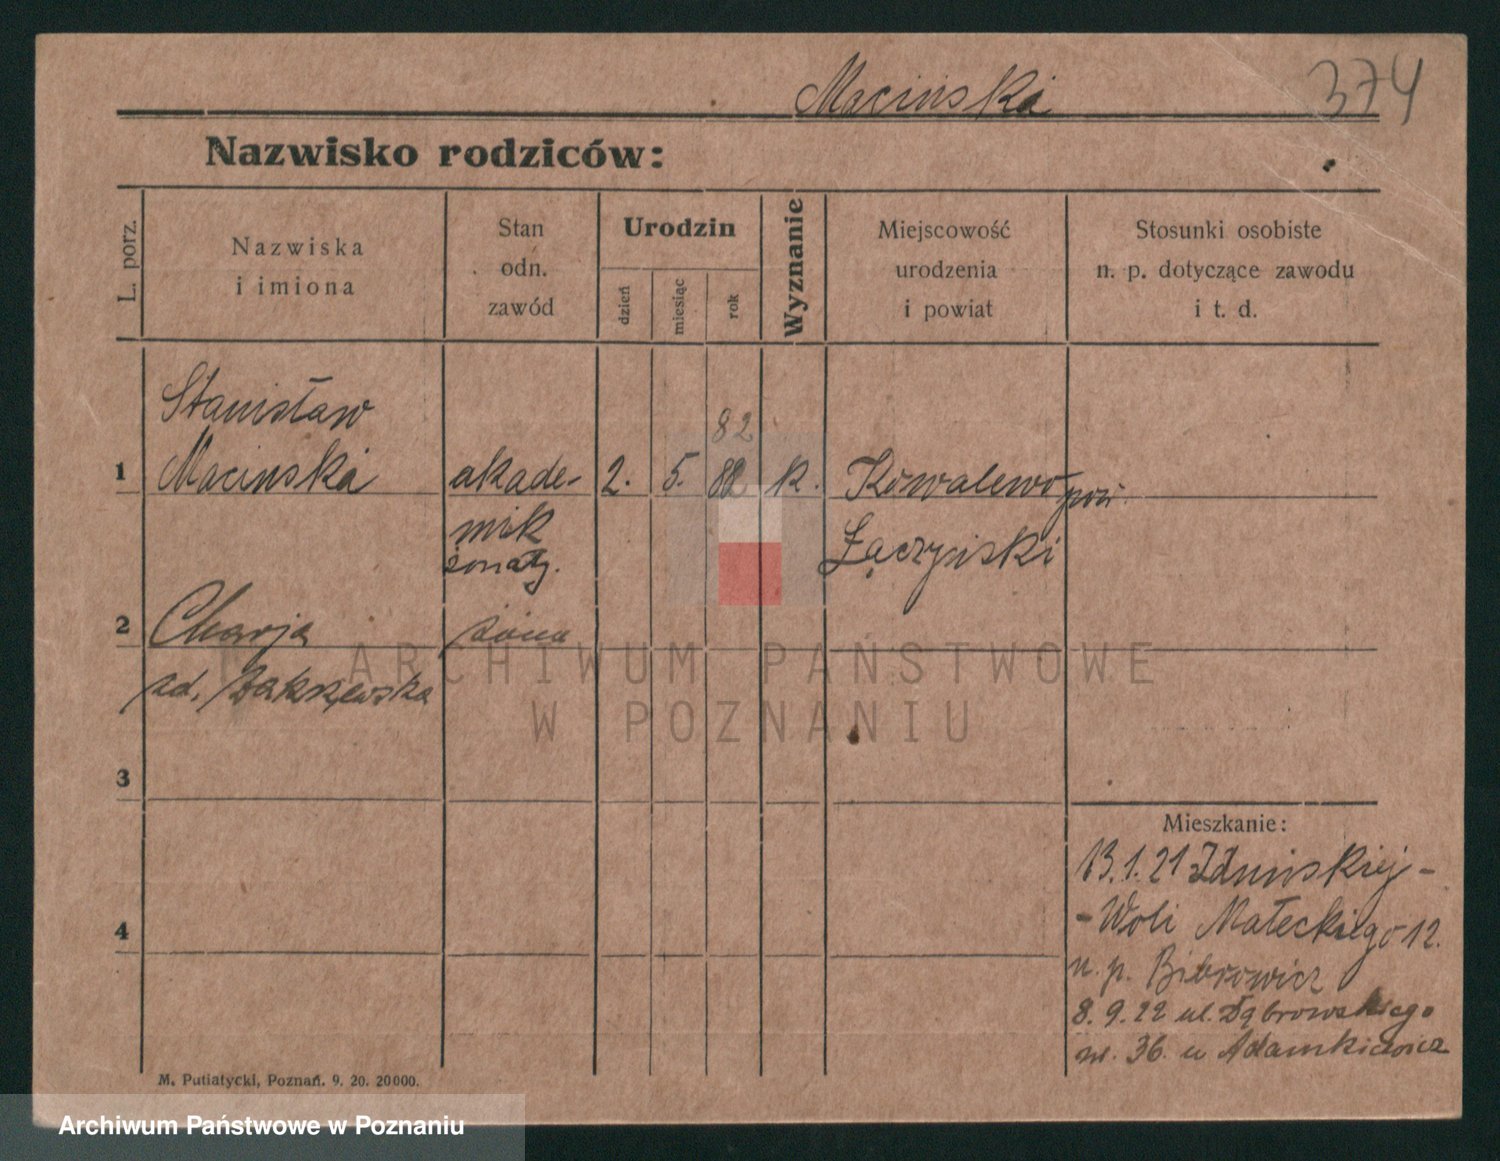 Maciński
374
Nazwisko rodziców:
L. porz.
Nazwiska
i imiona
Stan
odn.
zawód
Urodzin
dzień
miesiąc
rok
Wyznanie
Miejscowość
urodzenia
i powiat
Stosunki osobiste
n. p. dotyczące zawodu
i t. d.
Stanisław
82
1 Maciński akade- 2. 5. 82 k. Kowalewo pow.
mik Łączyński
żonaty.
2 Marja żona
zd. Zakrzewska
3
4
Mieszkanie:
13.1.21 Zduńskiej -
- Woli Małeckiego 12.
u. p. Bibrowicz
8.9.22 ul. Dąbrowskiego
nr. 36. u Adamkiewicz
M. Putiatycki, Poznań. 9. 20. 20000.
ARCHIWUM PAŃSTWOWE
W POZNANIU
Archiwum Państwowe w Poznaniu